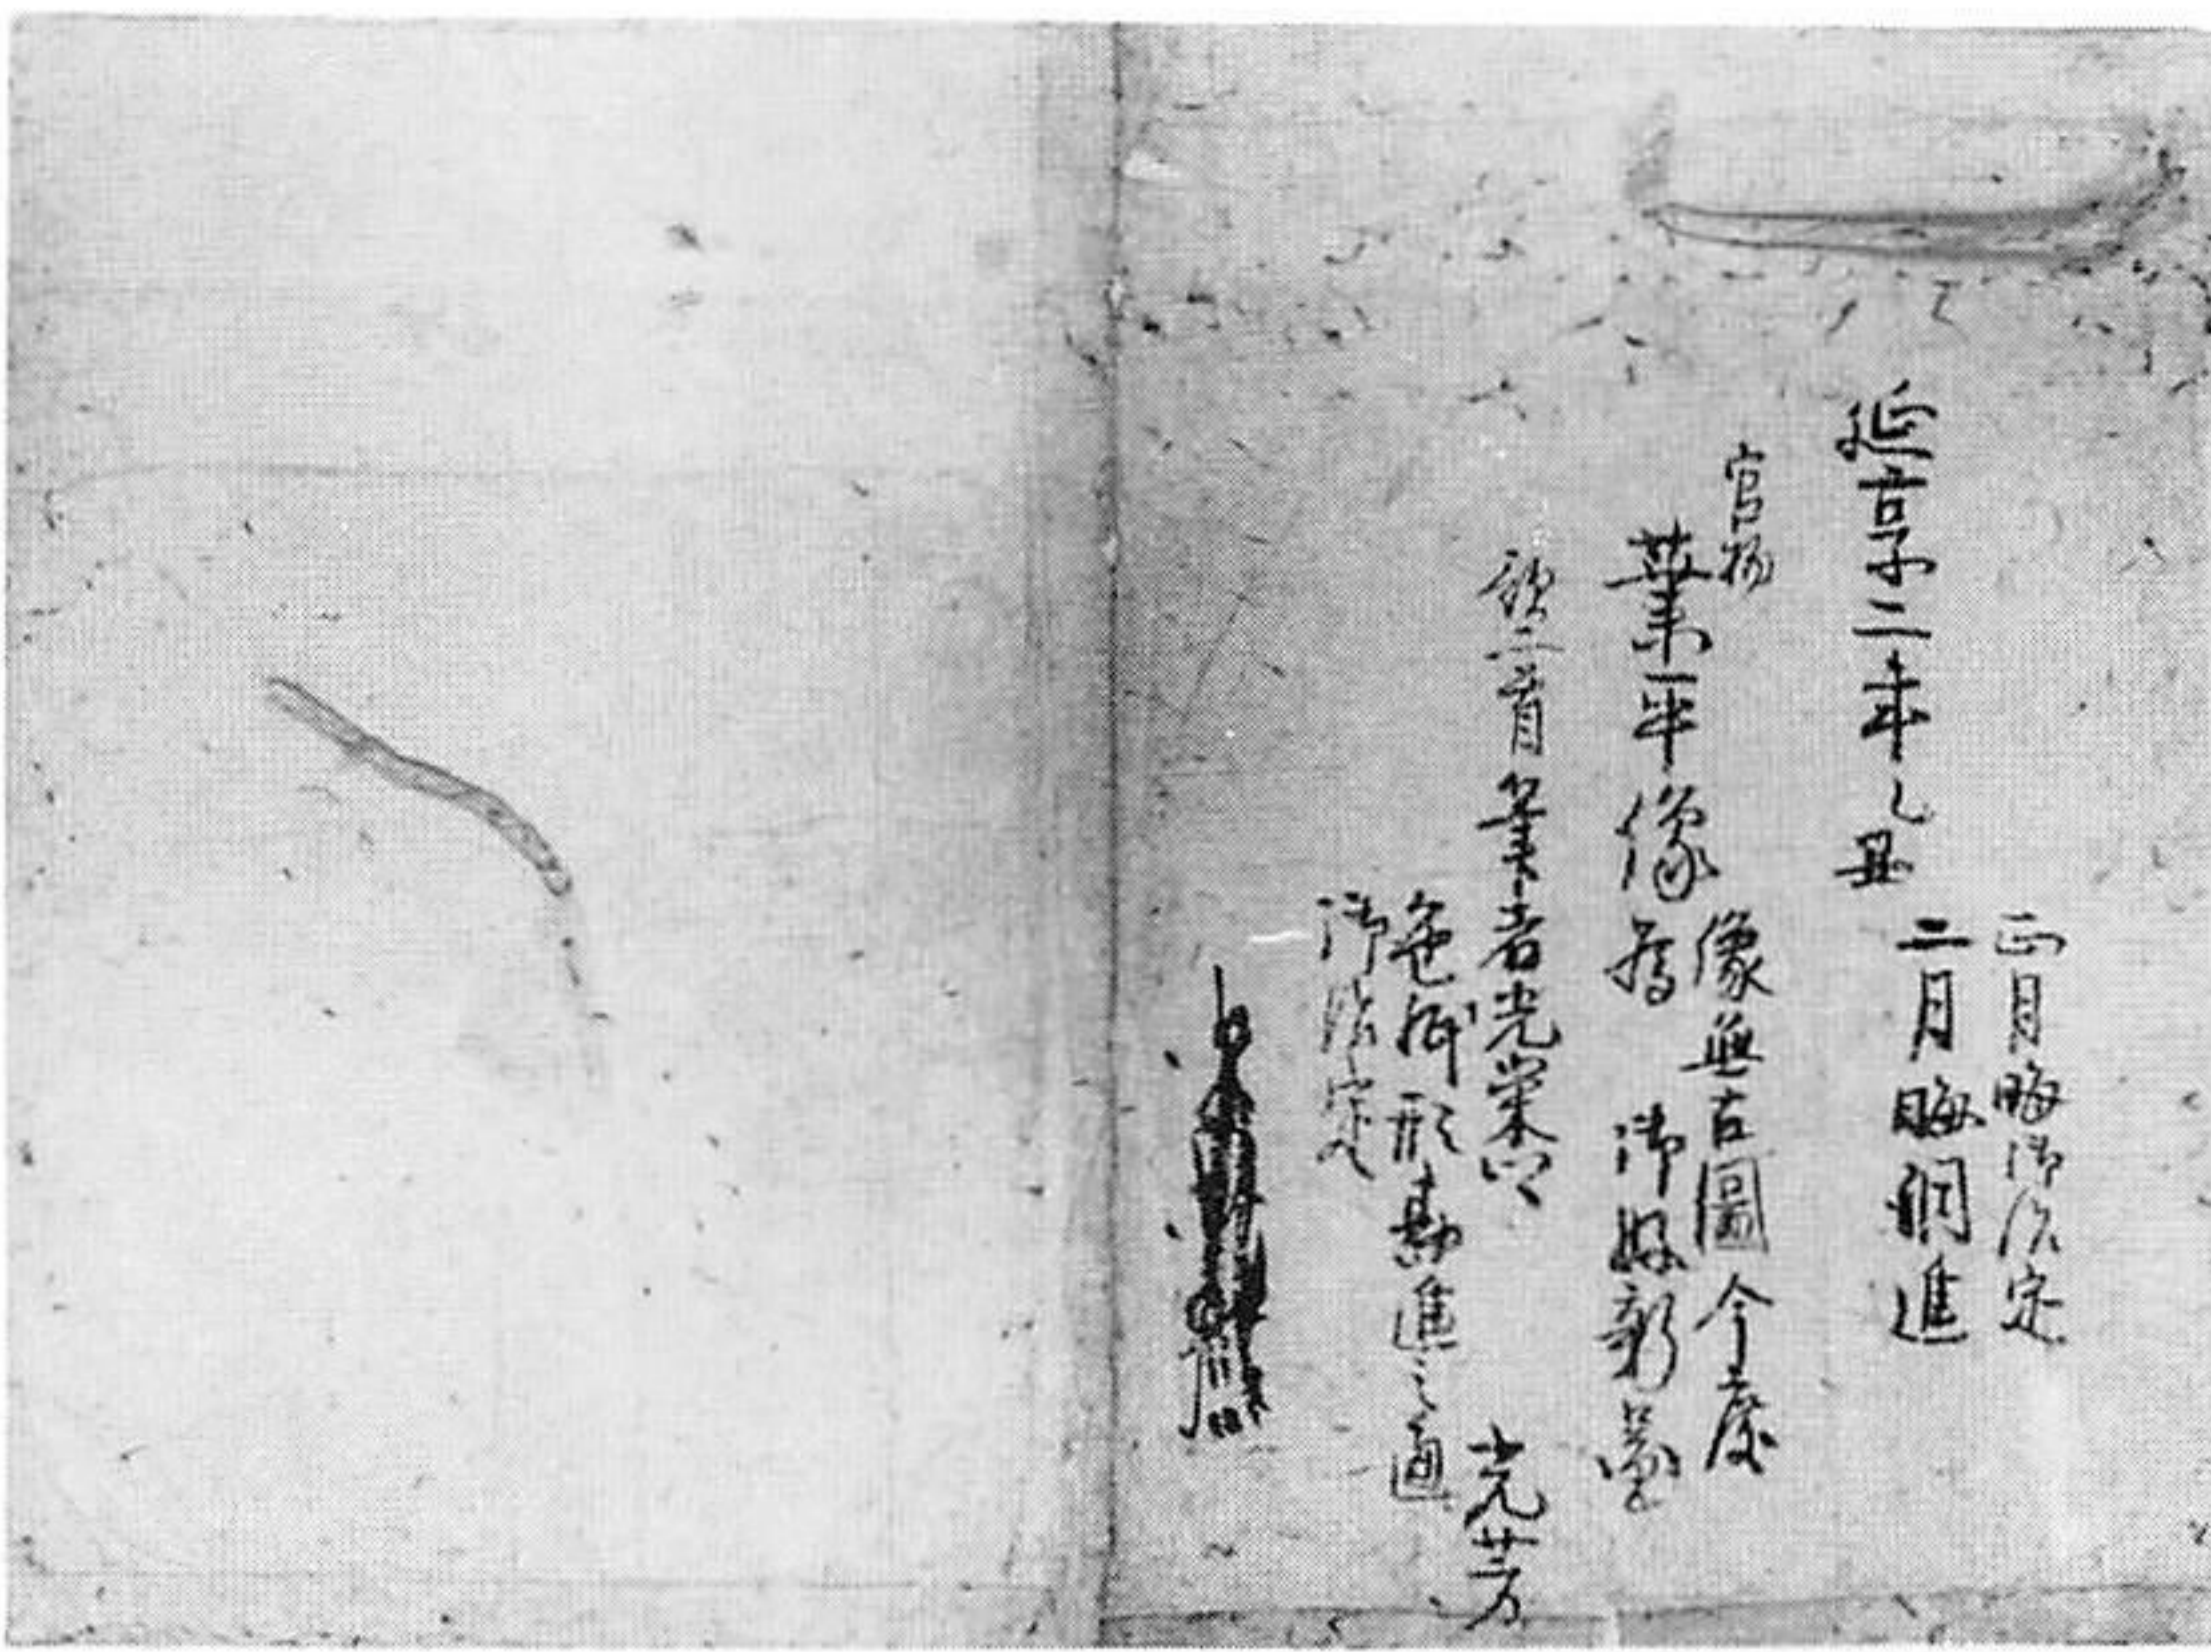 延享二年乙丑
正月晦御治定
二月晦調進
官物
業平像
像無古圖今度
為 御好新図
歌二首 筆者光栄卿
色紙形勘進之通
御治定
光芳